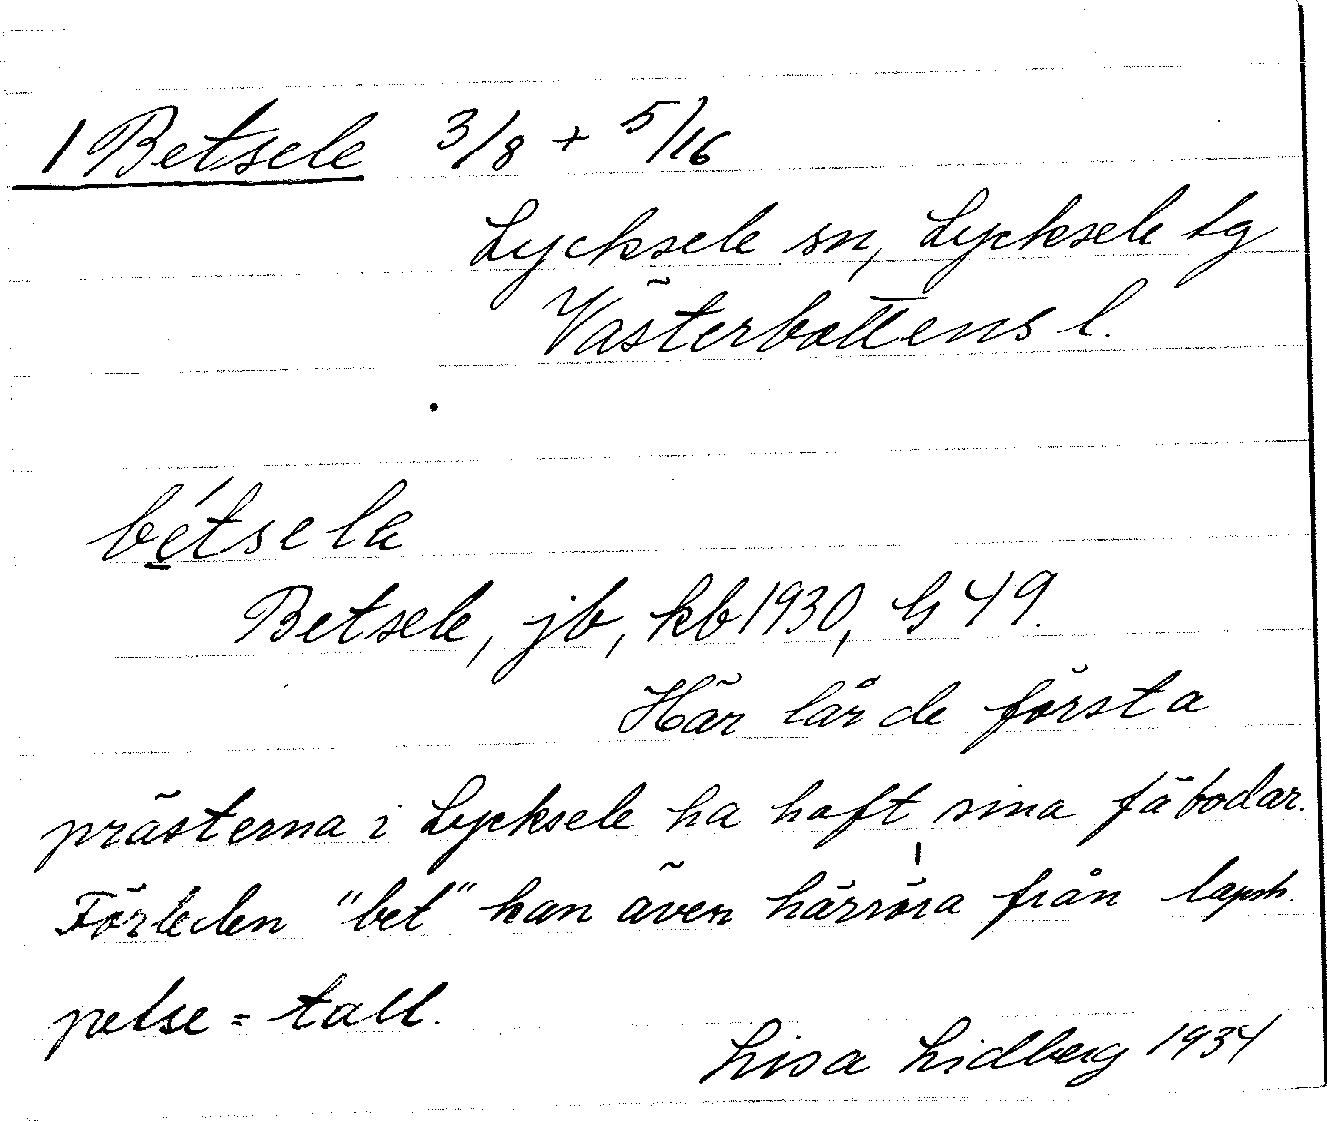 1 Betsele 3/8 + 5/16
Lycksele sn, Lycksele lg
Västerbottens l.
bétsela
Betsele, jb, kb 1930, G 49.
Här lår de första
prästerna i Lycksele ha haft sina fäbodar.
Förleden "bet" kan även härröra från lapsk.
petse = tall.
Lisa Lidberg 1934